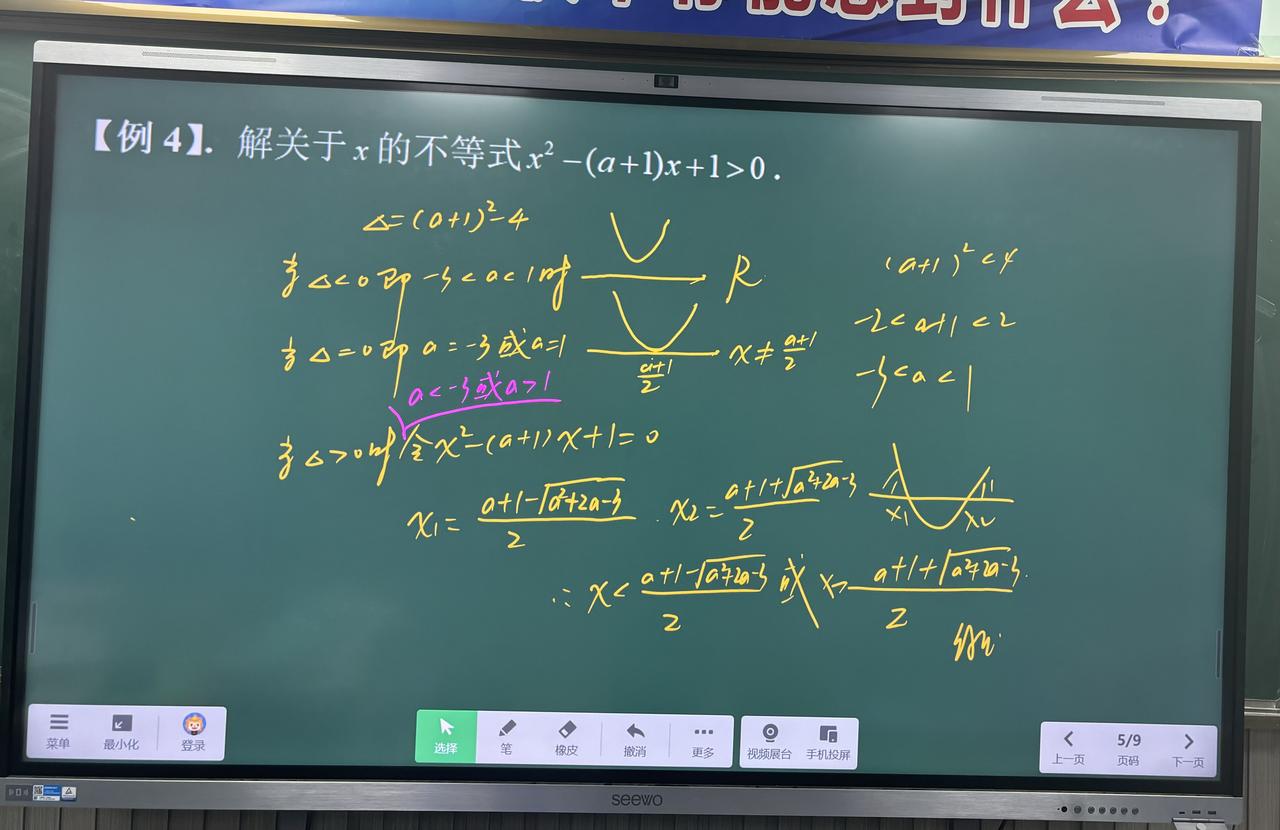 【例 4】. 解关于 x 的不等式 x² −(a+1)x+1>0 .
Δ=(a+1)²-4
当Δ<0即 -3<a<1时 R
(a+1)²<4
-2<a+1<2
-3<a<1
当Δ=0即 a=-3或a=1 (a+1)/2 x≠(a+1)/2
a<-3或a>1
当Δ>0时 令x²-(a+1)x+1=0
x₁=(a+1-√(a²+2a-3))/2 x₂=(a+1+√(a²+2a-3))/2 x₁ x₂
∴ x<(a+1-√(a²+2a-3))/2 或 x>(a+1+√(a²+2a-3))/2
菜单 最小化 登录 选择 笔 橡皮 撤消 更多 视频展台 手机投屏 上一页 5/9 页码 下一页
seewo